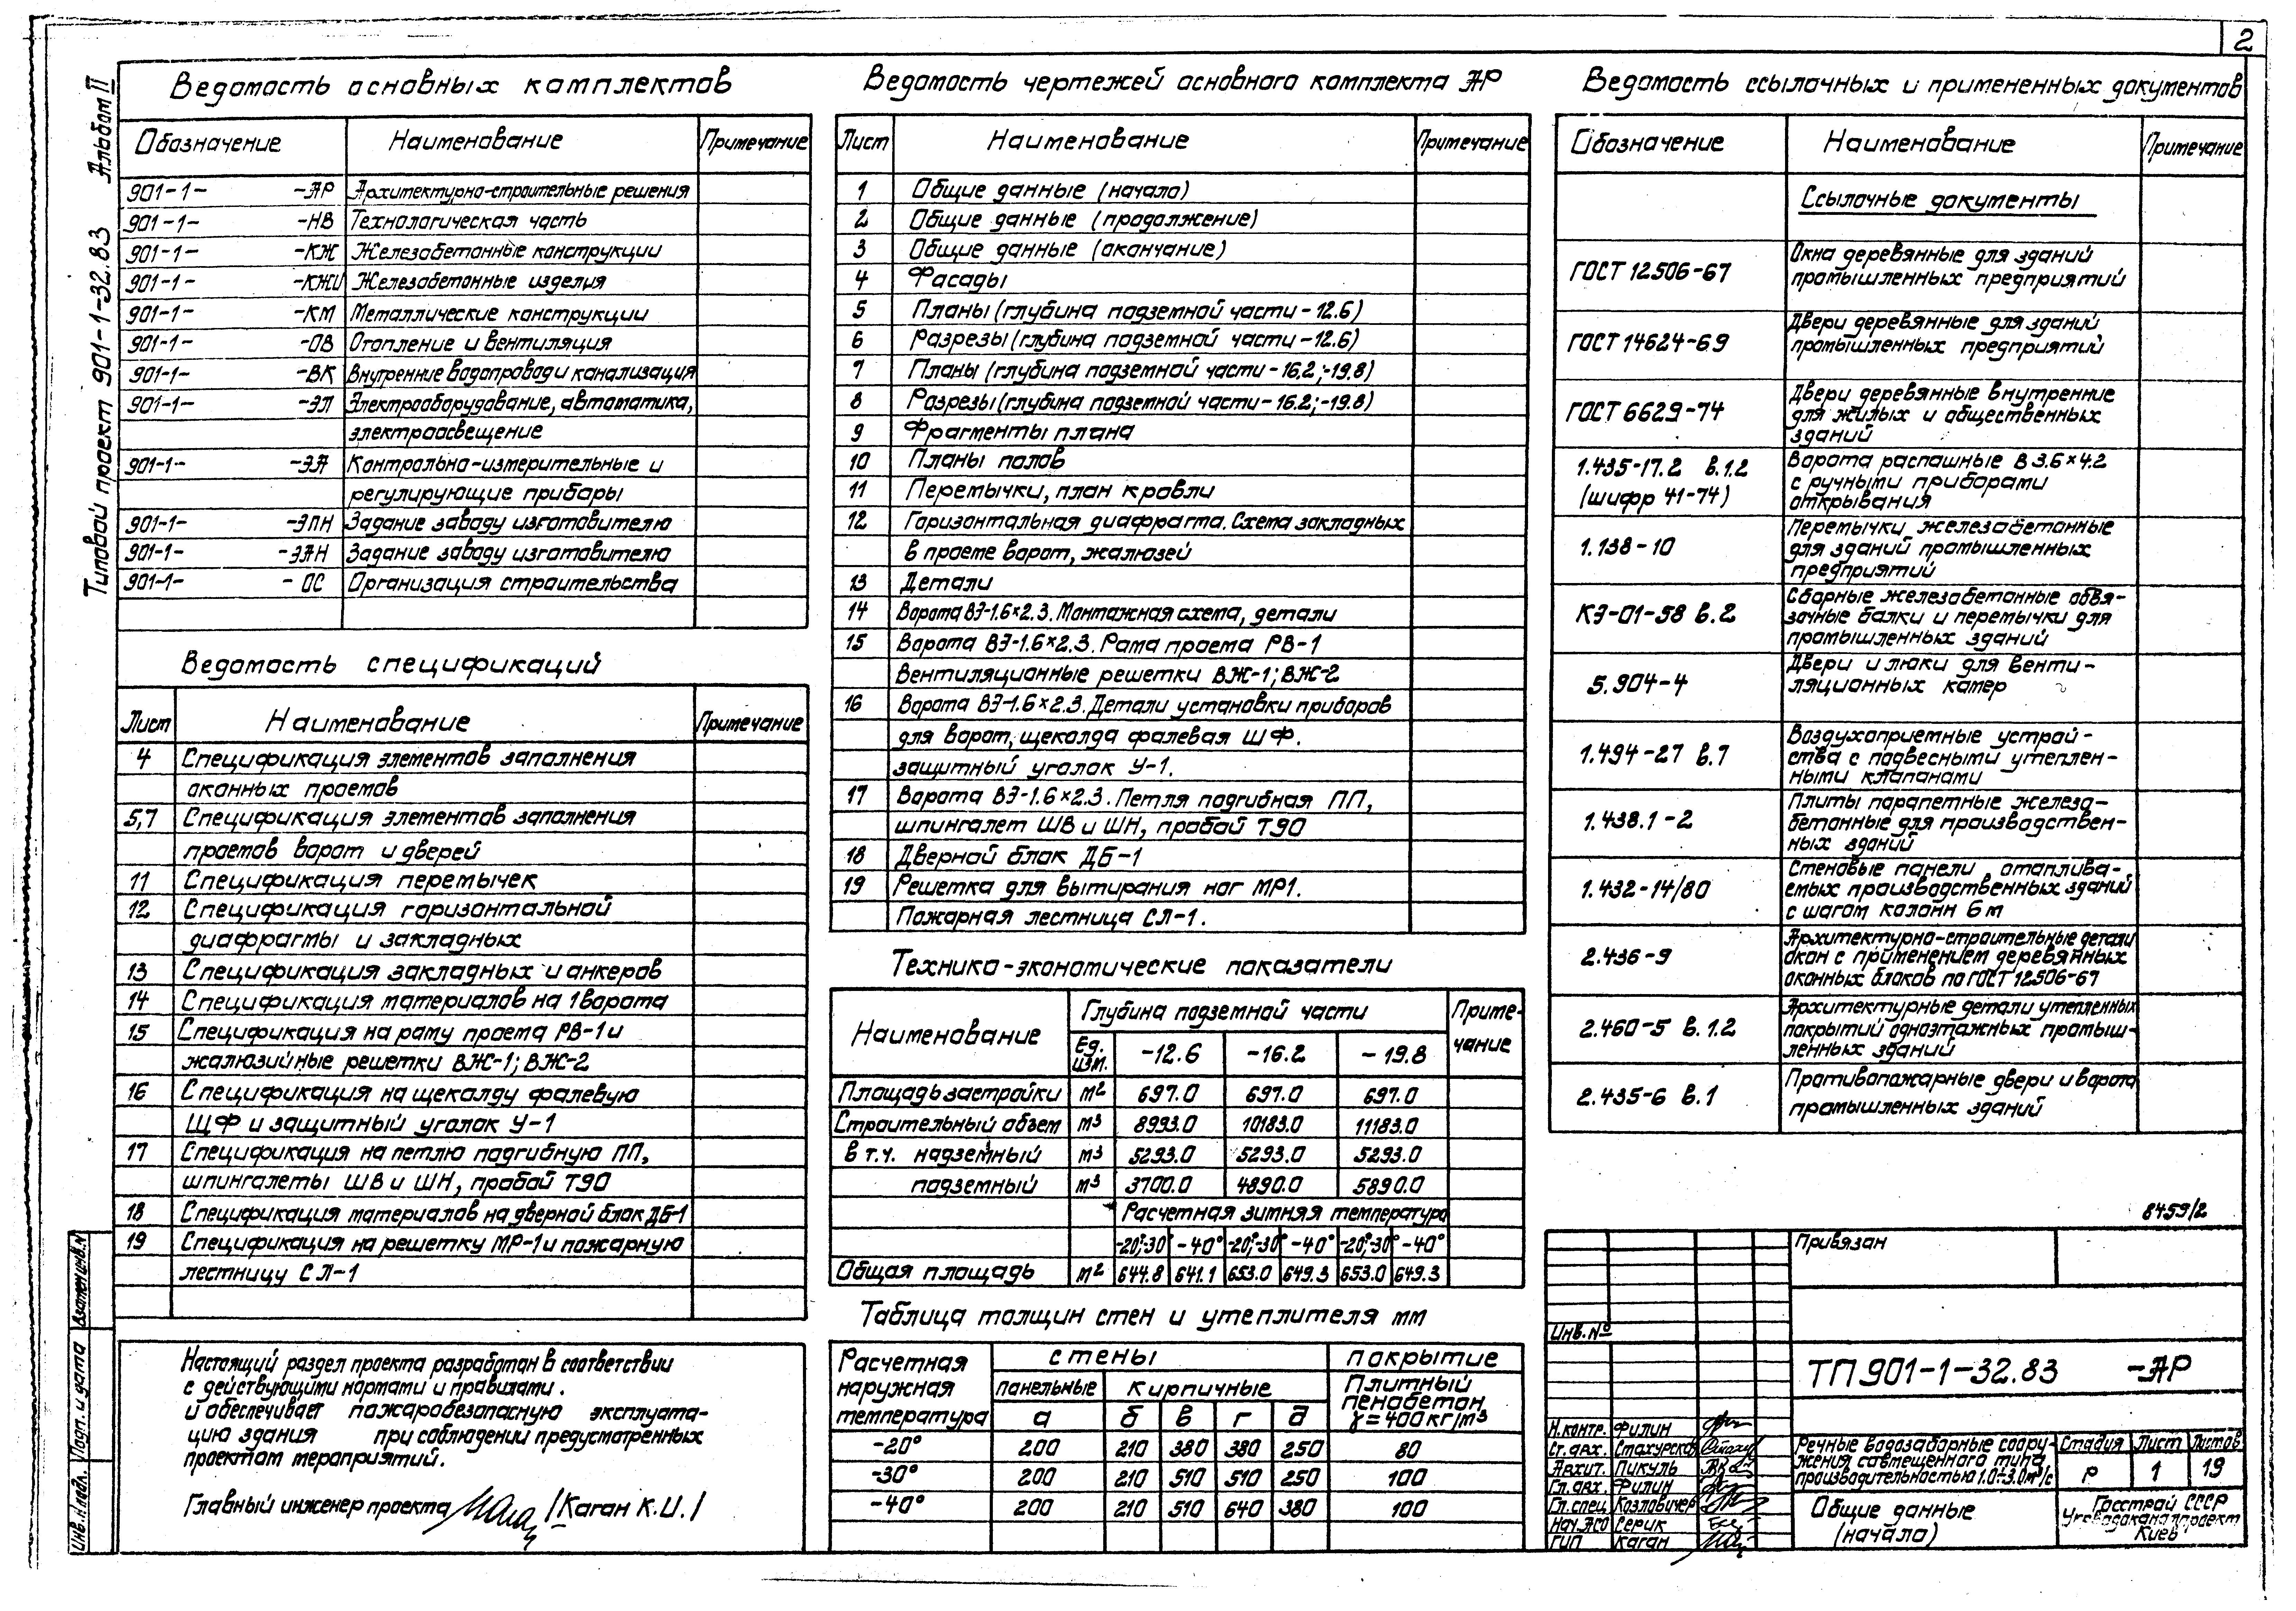 2
Типовой проект 901-1-32.83 Альбом II
Ведомость основных комплектов
Обозначение Наименование Примечание
901-1- -АР Архитектурно-строительные решения
901-1- -НВ Технологическая часть
901-1- -КЖ Железобетонные конструкции
901-1- -КЖИ Железобетонные изделия
901-1- -КМ Металлические конструкции
901-1- -ОВ Отопление и вентиляция
901-1- -ВК Внутренние водопровод и канализация
901-1- -ЭЛ Электрооборудование, автоматика,
электроосвещение
901-1- -ЭА Контрольно-измерительные и
регулирующие приборы
901-1- -ЭЛН Задание заводу изготовителю
901-1- -ЭАН Задание заводу изготовителю
901-1- - ОС Организация строительства
Ведомость спецификаций
Лист Наименование Примечание
4 Спецификация элементов заполнения
оконных проемов
5,7 Спецификация элементов заполнения
проемов ворот и дверей
11 Спецификация перемычек
12 Спецификация горизонтальной
диафрагмы и закладных
13 Спецификация закладных и анкеров
14 Спецификация материалов на 1 ворота
15 Спецификация на раму проема РВ-1 и
жалюзийные решетки ВЖ-1; ВЖ-2
16 Спецификация на щеколду фалевую
ЩФ и защитный уголок У-1
17 Спецификация на петлю подгибную ПП,
шпингалеты ШВ и ШН, пробой Т90
18 Спецификация материалов на дверной блок ДБ-1
19 Спецификация на решетку МР-1 и пожарную
лестницу СЛ-1
Настоящий раздел проекта разработан в соответствии
с действующими нормами и правилами.
и обеспечивает пожаробезопасную эксплуата-
цию здания при соблюдении предусмотренных
проектом мероприятий.
Главный инженер проекта /Каган К.И./
Ведомость чертежей основного комплекта АР
Лист Наименование Примечание
1 Общие данные (начало)
2 Общие данные (продолжение)
3 Общие данные (окончание)
4 Фасады
5 Планы (глубина подземной части - 12.6)
6 Разрезы (глубина подземной части - 12.6)
7 Планы (глубина подземной части - 16.2; -19.8)
8 Разрезы (глубина подземной части - 16.2; -19.8)
9 Фрагменты плана
10 Планы полов
11 Перемычки, план кровли
12 Горизонтальная диафрагма. Схема закладных
в проеме ворот, жалюзей
13 Детали
14 Ворота ВЭ-1.6×2.3. Монтажная схема, детали
15 Ворота ВЭ-1.6×2.3. Рама проема РВ-1
Вентиляционные решетки ВЖ-1; ВЖ-2
16 Ворота ВЭ-1.6×2.3. Детали установки приборов
для ворот, щеколда фалевая ШФ.
защитный уголок У-1.
17 Ворота ВЭ-1.6×2.3. Петля подгибная ПП,
шпингалет ШВ и ШН, пробой Т90
18 Дверной блок ДБ-1
19 Решетка для вытирания ног МР1.
Пожарная лестница СЛ-1.
Технико-экономические показатели
Наименование Глубина подземной части Приме-
чание
Ед. изм. -12.6 -16.2 - 19.8
Площадь застройки м² 697.0 697.0 697.0
Строительный объем м³ 8993.0 10183.0 11183.0
в т.ч. надземный м³ 5293.0 5293.0 5293.0
подземный м³ 3700.0 4890.0 5890.0
Расчетная зимняя температура
-20°;-30° -40° -20°;-30° -40° -20°;-30° -40°
Общая площадь м² 644.8 641.1 653.0 649.3 653.0 649.3
Таблица толщин стен и утеплителя мм
Расчетная наружная температура стены покрытие
панельные кирпичные Плитный пенобетон γ=400кг/м³
а б в г д
-20° 200 210 380 380 250 80
-30° 200 210 510 510 250 100
-40° 200 210 510 640 380 100
Ведомость ссылочных и примененных документов
Обозначение Наименование Примечание
Ссылочные документы
ГОСТ 12506-67 Окна деревянные для зданий
промышленных предприятий
ГОСТ 14624-69 Двери деревянные для зданий
промышленных предприятий
ГОСТ 6629-74 Двери деревянные внутренние
для жилых и общественных
зданий
1.435-17.2 в.1.2 Ворота распашные В 3.6×4.2
(шифр 41-74) с ручными приборами
открывания
1.138-10 Перемычки железобетонные
для зданий промышленных
предприятий
КЭ-01-58 в.2 Сборные железобетонные обвя-
зочные балки и перемычки для
промышленных зданий
5.904-4 Двери и люки для венти-
ляционных камер
1.494-27 в.7 Воздухоприемные устрой-
ства с подвесными утеплен-
ными клапанами
1.438.1-2 Плиты парапетные железо-
бетонные для производствен-
ных зданий
1.432-14/80 Стеновые панели отаплива-
емых производственных зданий
с шагом колонн 6м
2.436-9 Архитектурно-строительные детали
окон с применением деревянных
оконных блоков по ГОСТ 12506-67
2.460-5 в.1.2 Архитектурные детали утепленных
покрытий одноэтажных промыш-
ленных зданий
2.435-6 в.1 Противопожарные двери и ворота
промышленных зданий
8459/2
Привязан
Инв.№
ТП 901-1-32.83 -АР
Н.контр. Филин
Ст.арх. Стахурская
Архит. Пикуль
Гл.арх. Филин
Гл.спец. Козловичер
Нач.АСО Серик
ГИП Каган
Речные водозаборные соору-
жения совмещенного типа
производительностью 1.0÷3.0м³/с
Стадия Лист Листов
Р 1 19
Общие данные
(начало)
Госстрой СССР
Укрводоканалпроект
Киев
Инв.№подл. Подп. и дата Взамен инв.№